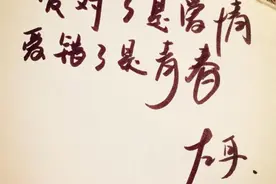 爱对了是爱情
爱错了是青春
左耳.